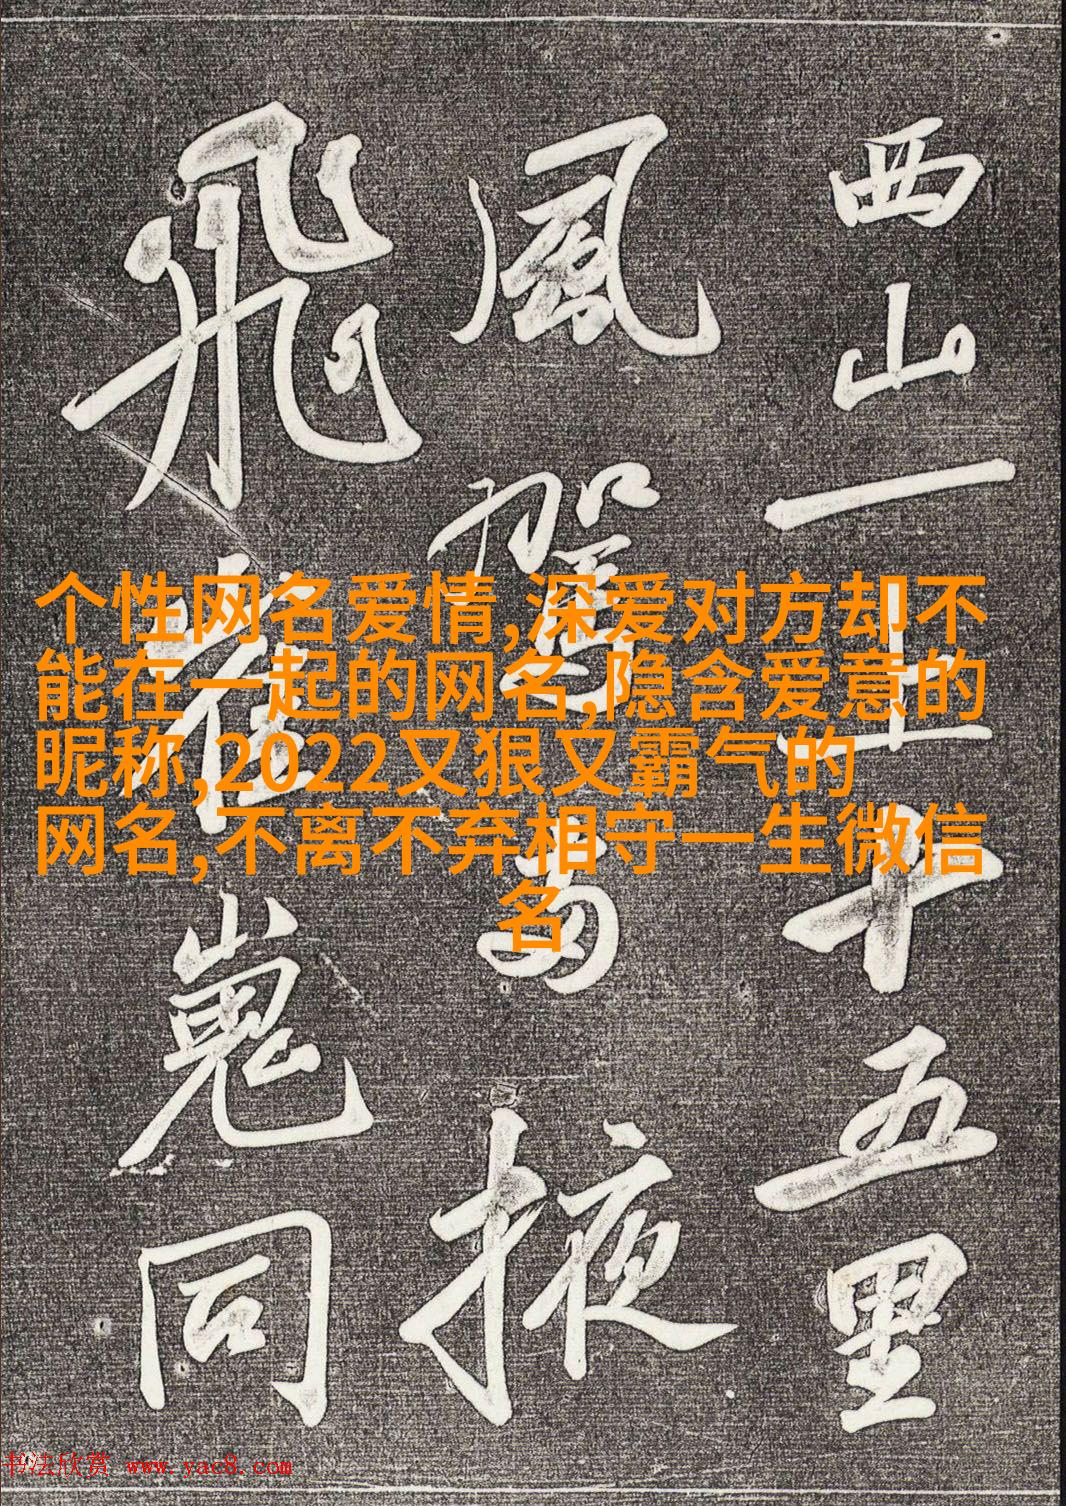 西山一上十五里
風駕兩掖
飛崔嵬同
个性网名爱情,深爱对方却不
能在一起的网名,隐含爱意的
昵称,2022又狠又霸气的
网名,不离不弃相守一生微信
名
书法欣赏 www.yac8.com